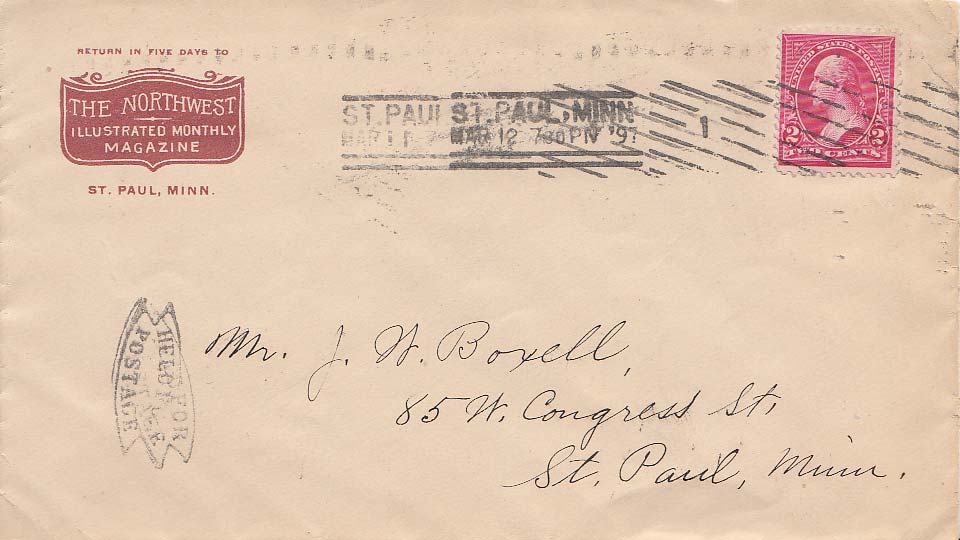 RETURN IN FIVE DAYS TO
THE NORTHWEST
ILLUSTRATED MONTHLY
MAGAZINE
ST. PAUL, MINN.
ST. PAUL ST. PAUL, MINN
MAR 11 MAR 12 7 30 PM '97
1
UNITED STATES POSTAGE
2 2
TWO CENTS
HELD FOR
POSTAGE
Mr. J. W. Boxell,
85 W. Congress St.
St. Paul, Minn.